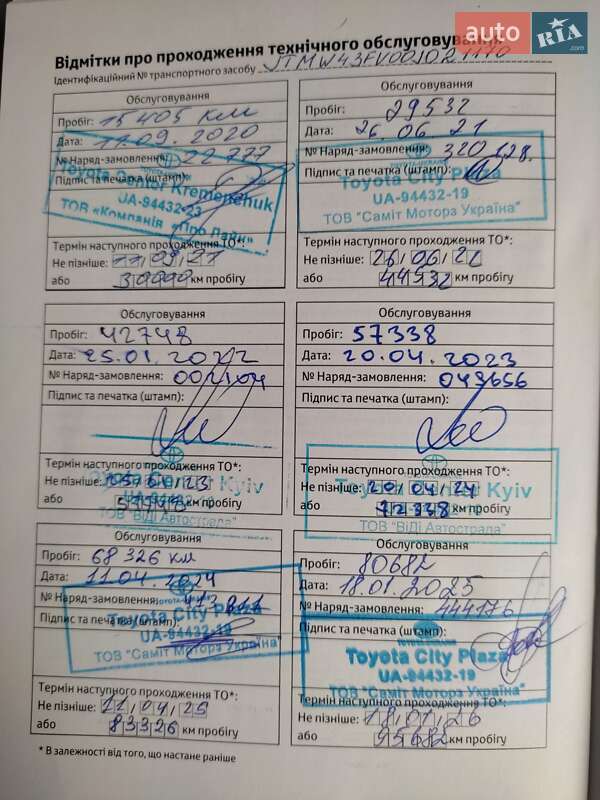 auto RIA .com
Відмітки про проходження технічного обслуговування
Ідентифікаційний № транспортного засобу
Обслуговування
Пробіг: 15405 км
Дата: 11.09.2020
№ Наряд-замовлення: 22777
Підпис та печатка (штамп):
Toyota Center Kremenchuk
UA-94432-23
ТОВ «Компанія «Про Лайн»
Термін наступного проходження ТО*:
Не пізніше: 11,09,21
або 30000 км пробігу
Обслуговування
Пробіг: 29532
Дата: 26.06.21
№ Наряд-замовлення: 320128.
Підпис та печатка (штамп):
Toyota City Plaza
UA-94432-19
ТОВ "Саміт Моторз Україна"
Термін наступного проходження ТО*:
Не пізніше: 26,06,22
або 44532 км пробігу
Обслуговування
Пробіг: 42748
Дата: 25.01.2022
№ Наряд-замовлення:
Підпис та печатка (штамп):
Термін наступного проходження ТО*:
Не пізніше:
або км пробігу
Toyota Center Kyiv
ТОВ "ВіДі Автострада"
Обслуговування
Пробіг: 57338
Дата: 20.04.2023
№ Наряд-замовлення: 043656
Підпис та печатка (штамп):
Термін наступного проходження ТО*:
Не пізніше: 20,04,24
або 72338 км пробігу
Toyota Center Kyiv
ТОВ "ВіДі Автострада"
Обслуговування
Пробіг: 68 326 км
Дата: 11.04.2024
№ Наряд-замовлення:
Підпис та печатка (штамп):
Toyota City Plaza
UA-94432-19
ТОВ "Саміт Моторз Україна"
Термін наступного проходження ТО*:
Не пізніше: 11,04,25
або 83326 км пробігу
Обслуговування
Пробіг: 80682
Дата: 18.01.2025
№ Наряд-замовлення: 444176
Підпис та печатка (штамп):
Toyota City Plaza
UA-94432-19
ТОВ "Саміт Моторз Україна"
Термін наступного проходження ТО*:
Не пізніше: 18,01,26
або 95682 км пробігу
* В залежності від того, що настане раніше